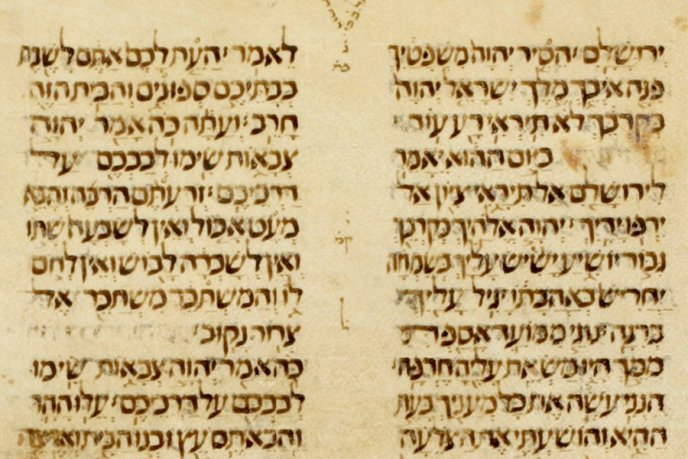 ירושלם הסיר יהוה משפטיך
פנה איבך מלך ישראל יהוה
בקרבך לא תיראי רע עוד
ביום ההוא יאמר
לירושלם אל תיראי ציון אל
ירפו ידיך יהוה אלהיך בקרבך
גבור יושיע ישיש עליך בשמחה
יחריש באהבתו יגיל עליך
ברנה נוגי ממועד אספתי
ממך היו משאת עליה חרפה
הנני עשה את כל מעניך בעת
ההיא והושעתי את הצלעה
לאמר העת לכם אתם לשבת
בבתיכם ספונים והבית הזה
חרב ועתה כה אמר יהוה
צבאות שימו לבבכם על
דרכיכם זרעתם הרבה והבא
מעט אכול ואין לשבעה שתו
ואין לשכרה לבוש ואין לחם
לו והמשתכר משתכר אל
צרור נקוב
כה אמר יהוה צבאות שימו
לבבכם על דרכיכם עלו ההר
והבאתם עץ ובנו הבית וארצה